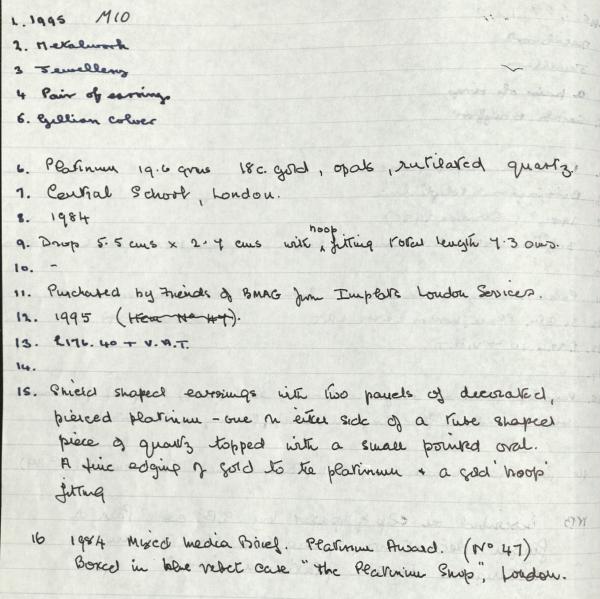 1. 1995 M10
2. Metalwork
3 Jewellery
4 Pair of earrings
5. Gillian Colver
6. Platinum 19.6 gms 18c. gold, opals, rutilated quartz.
7. Central School, London.
8. 1984
9. Drop 5.5 cms x 2.7 cms with hoop fitting total length 7.3 cms.
10. -
11. Purchased by Friends of BMAG from London Services.
12. 1995 (Item No 47).
13. £176.40 + V.A.T.
14.
15. Shield shaped earrings with two panels of decorated,
pierced platinum - one on either side of a tube shaped
piece of quartz topped with a small pointed oval.
A fine edging of gold to the platinum + a gold 'hoop'
fitting
16 1984 Mixed Media Brief. Platinum Award. (No 47)
Boxed in blue velvet case "The Platinum Shop", London.